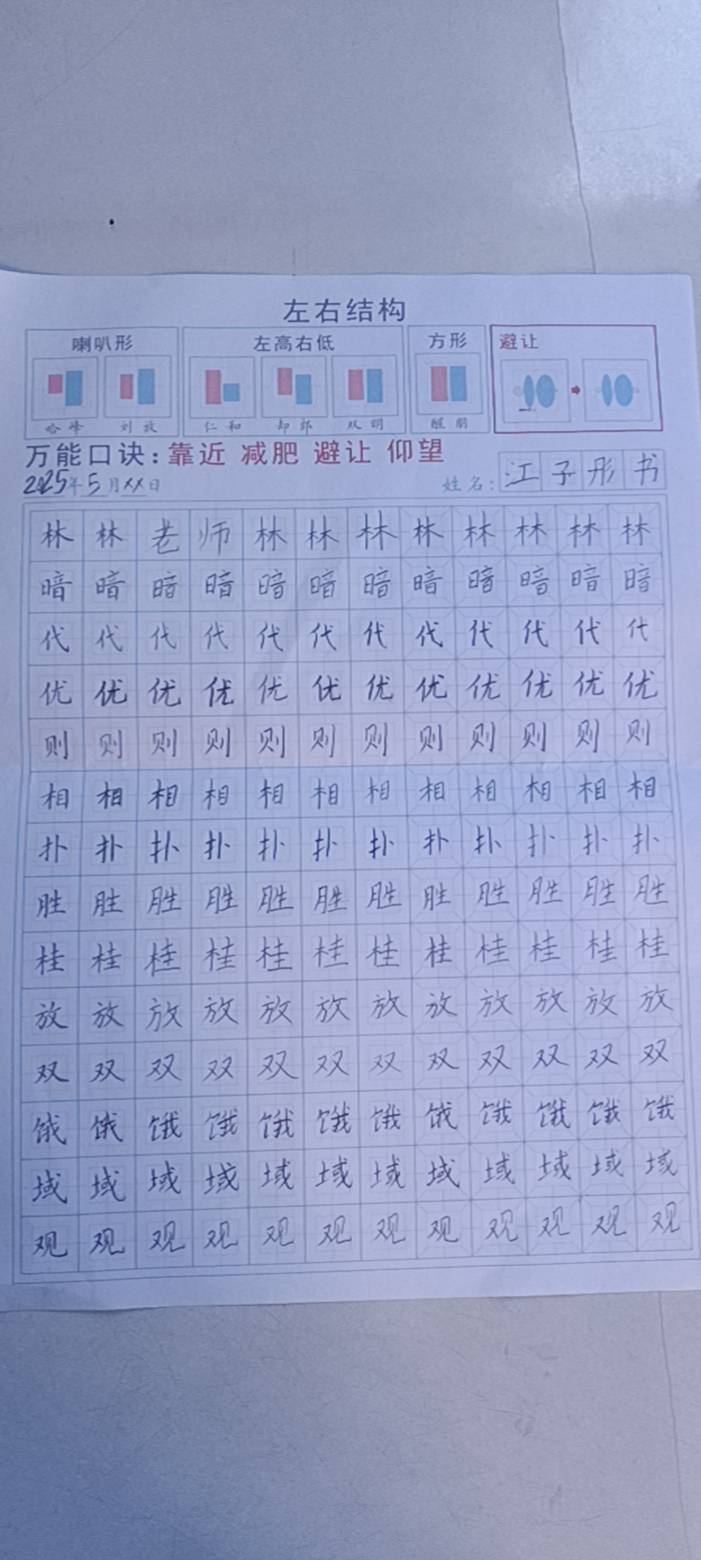 左右结构
喇叭形 左高右低 方形 避让
哈 峰 刘 放 仁 和 却 郎 双 明 朋
万能口诀：靠近 减肥 避让 仰望
2025年5月××日 姓名：江子彤书
林林老师林林林林林林林林
暗暗暗暗暗暗暗暗暗暗暗暗
代代代代代代代代代代代代
优优优优优优优优优优优优
则则则则则则则则则则则则
相相相相相相相相相相相相
扑扑扑扑扑扑扑扑扑扑扑扑
胜胜胜胜胜胜胜胜胜胜胜胜
桂桂桂桂桂桂桂桂桂桂桂桂
放放放放放放放放放放放放
双双双双双双双双双双双双
饿饿饿饿饿饿饿饿饿饿饿饿
域域域域域域域域域域域域
观观观观观观观观观观观观